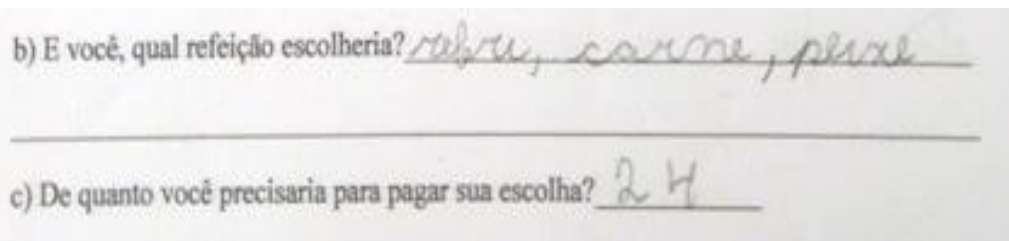 b) E você, qual refeição escolheria? , carne, peixe
c) De quanto você precisaria para pagar sua escolha? 24